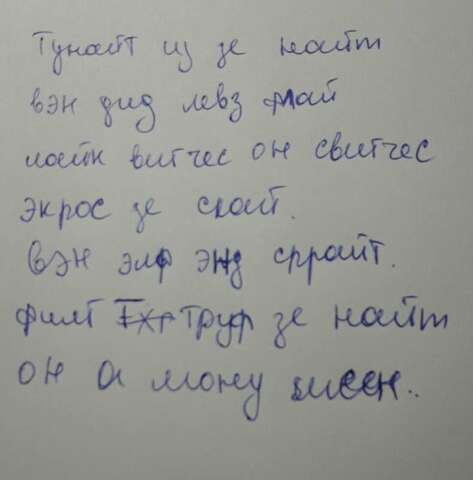 Тунайт из зе найт
вэн дид левз май
лайк витчес он свитчес
экрос зе скай.
Вэн элф энд спрайт.
флит тру зе найт
он а мону шеен..